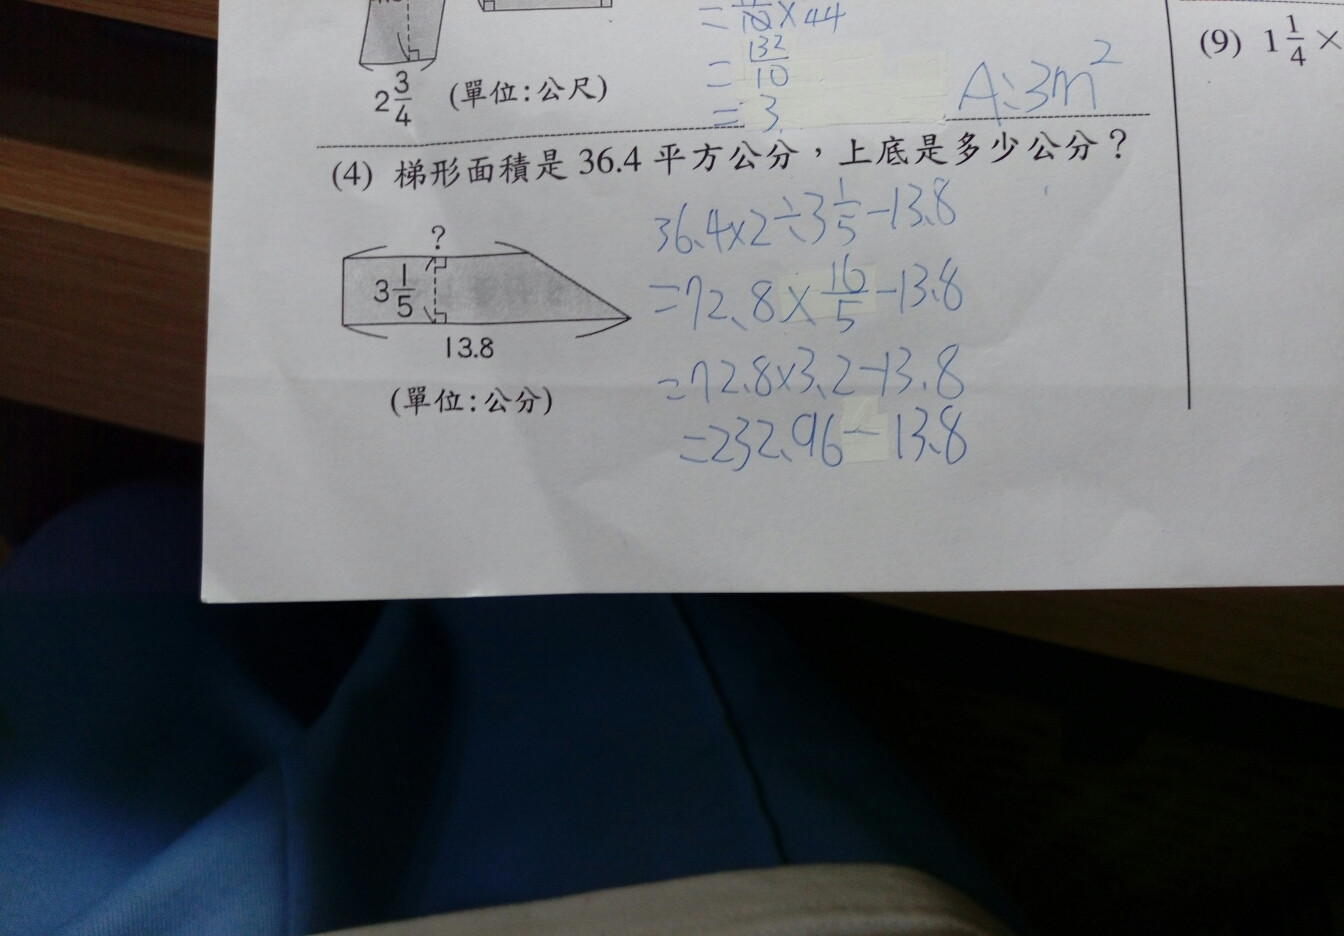 = × 44
= 132/10
= 3.
A:3m²
2 3/4
(單位:公尺)
(9) 1 1/4 ×
(4) 梯形面積是 36.4 平方公分，上底是多少公分？
?
3 1/5
13.8
(單位:公分)
36.4×2÷3 1/5-13.8
=72.8×16/5-13.8
=72.8×3.2-13.8
=232.96-13.8